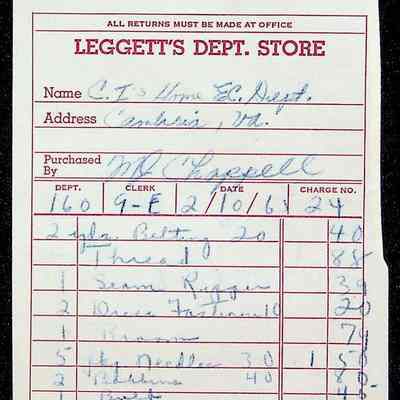 ALL RETURNS MUST BE MADE AT OFFICE
LEGGETT'S DEPT. STORE
Name C. I's Home Ec. Dept.
Address , Va.
Purchased By Chappell
DEPT. CLERK DATE CHARGE NO.
160 9-E 2/10/61 24
2 yds. Belting 20 40
Thread 88
1 Seam Ripper 39
2 Dress Fasteners 10 20
1 Broom
5 Needles 30 1 50
2 Bobbins 40 80
1